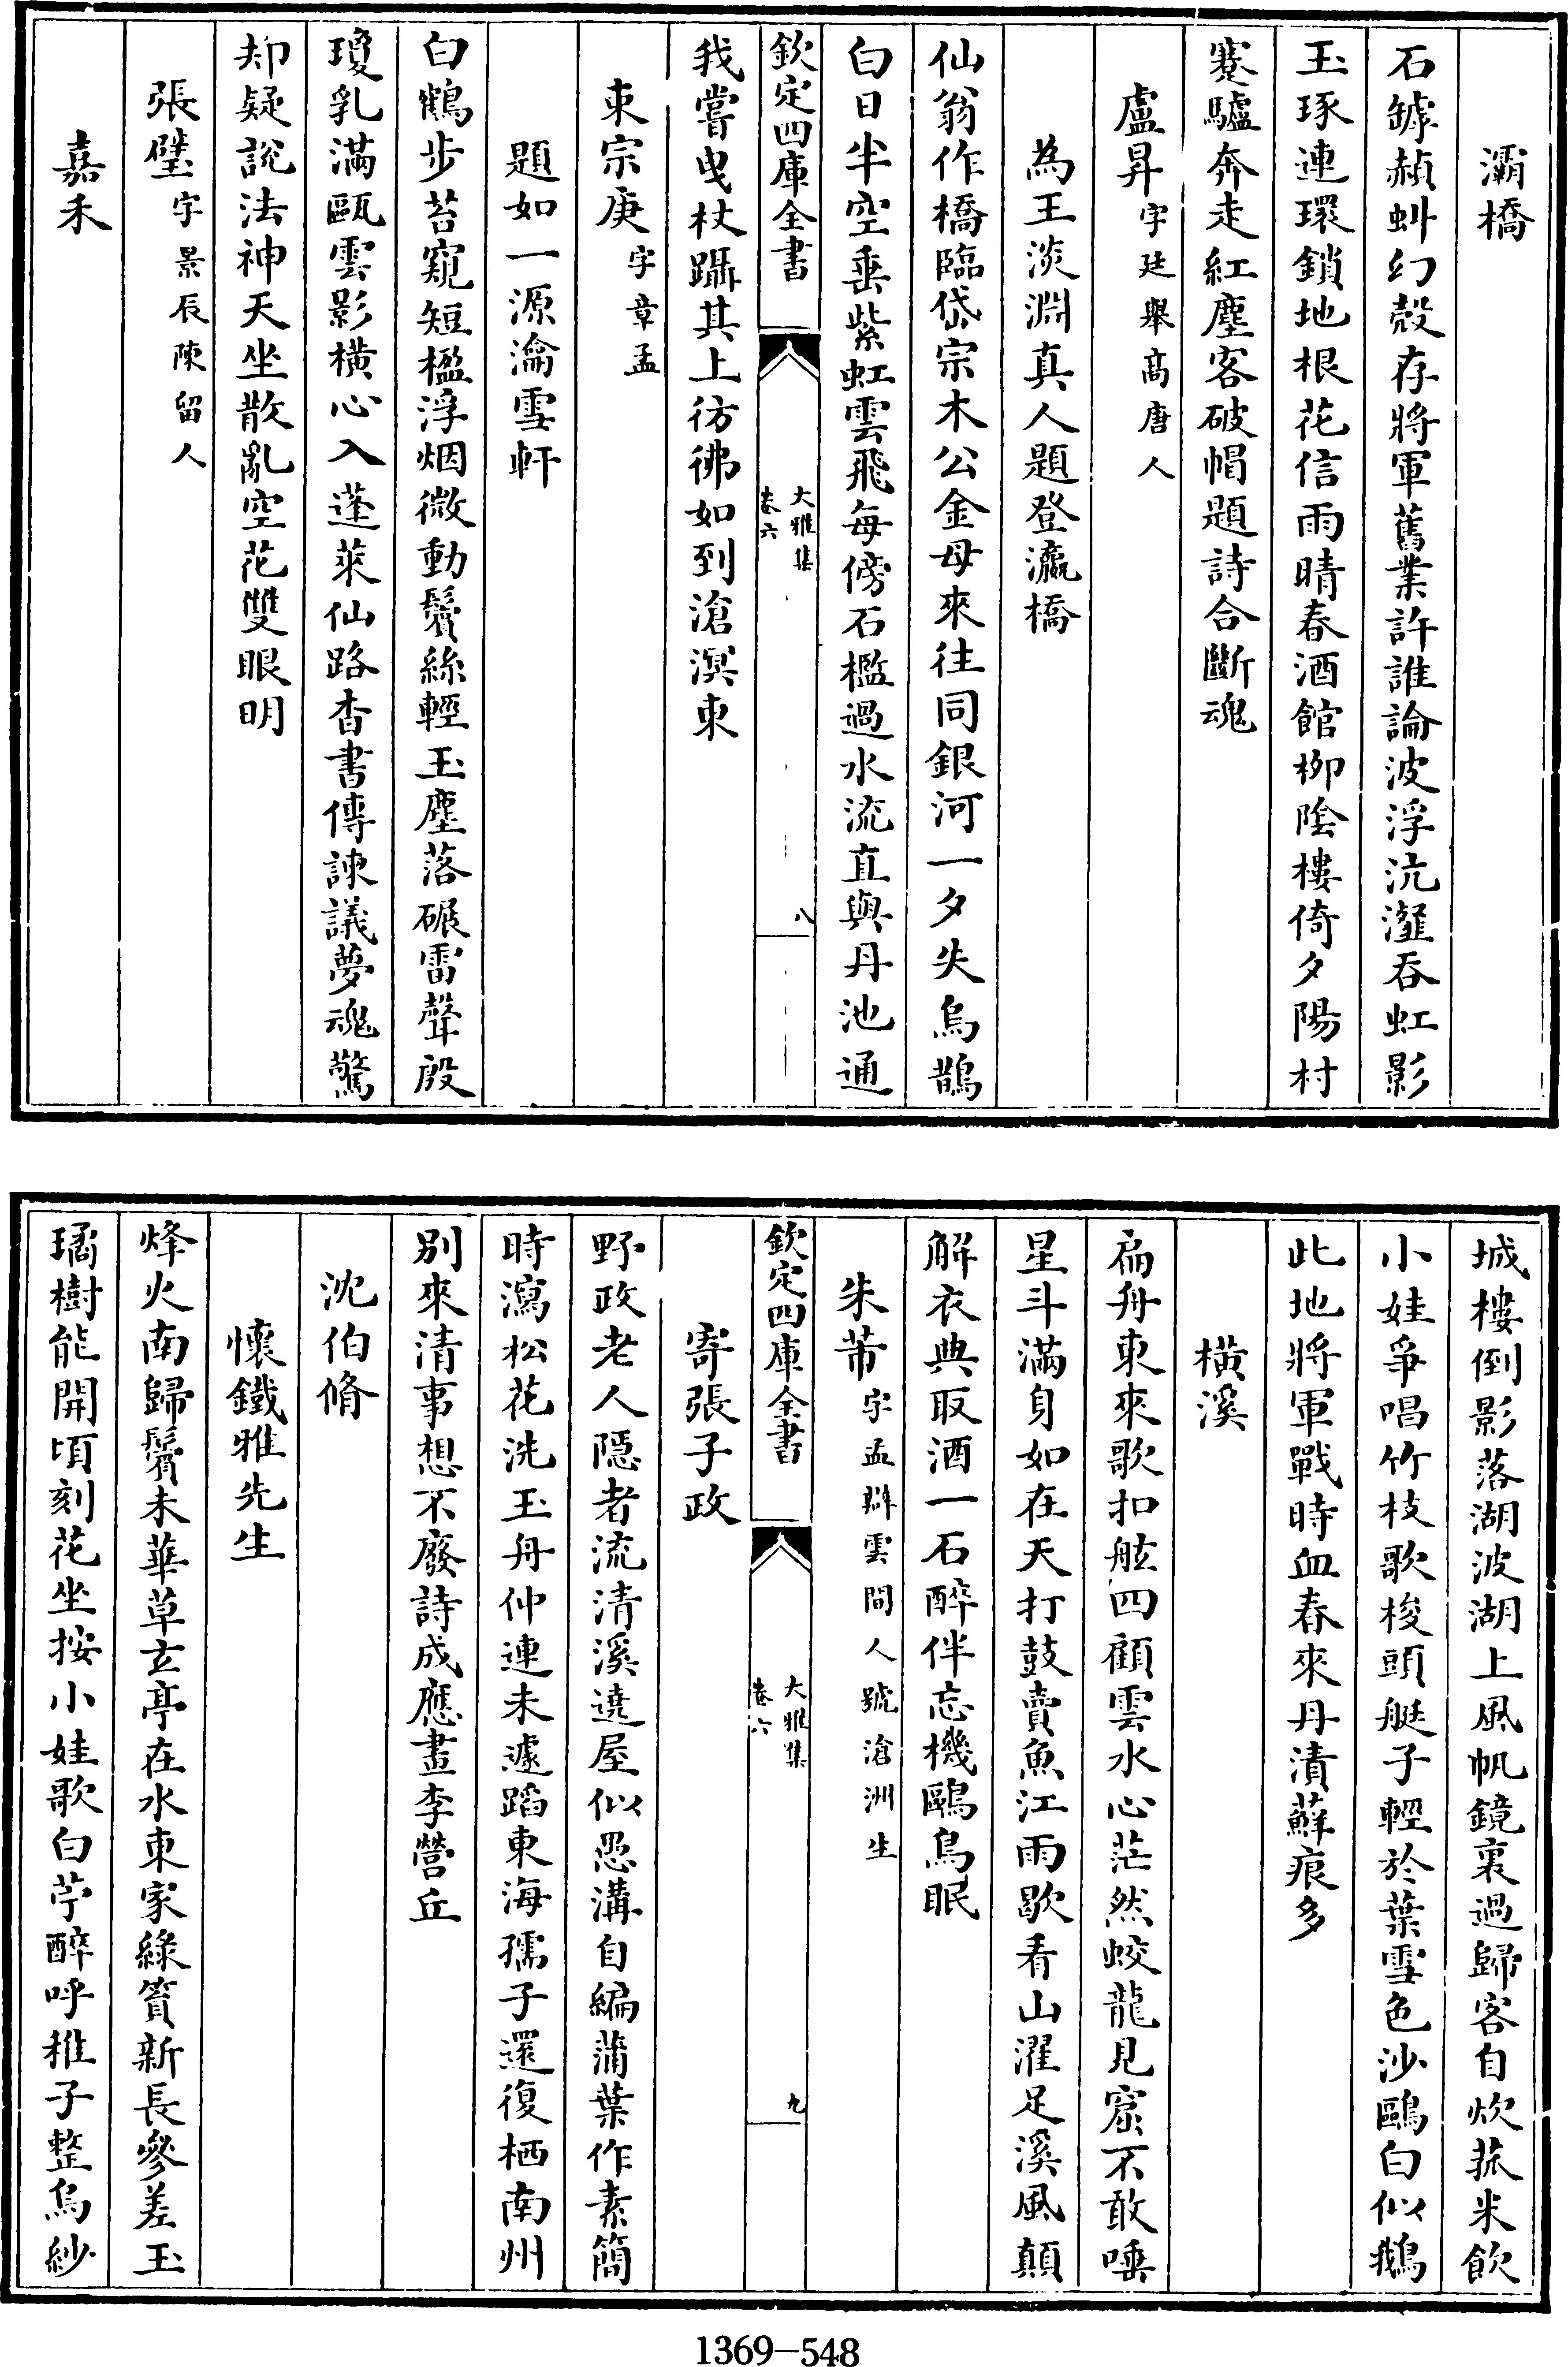 灞橋
石罅赬虯幻殼存將軍舊業許誰論波浮沆瀣吞虹影
玉琢連環鎖地根花信雨晴春酒館柳陰樓倚夕陽村
蹇驢奔走紅塵客破帽題詩合斷魂
盧昇字廷舉高唐人
為王淡淵真人題登瀛橋
仙翁作橋臨岱宗木公金母來往同銀河一夕失烏鵲
白日半空垂紫虹雲飛每傍石檻過水流直與丹池通
欽定四庫全書
大雅集
卷六
八
我嘗曳杖躡其上彷彿如到滄溟東
束宗庚字章孟
題如一源瀹雪軒
白鶴步苔窺短楹浮烟微動鬢絲輕玉塵落碾雷聲殷
瓊乳滿甌雲影橫心入蓬萊仙路杳書傳諫議夢魂驚
却疑說法神天坐散亂空花雙眼明
張璧字景辰陳留人
嘉禾
城樓倒影落湖波湖上風帆鏡裏過歸客自炊菰米飲
小娃爭唱竹枝歌梭頭艇子輕於葉雪色沙鷗白似鵝
此地將軍戰時血春來丹漬蘚痕多
橫溪
扁舟東來歌扣舷四顧雲水心茫然蛟龍見窟不敢唾
星斗滿身如在天打鼓賣魚江雨歇看山濯足溪風顛
解衣典取酒一石醉伴忘機鷗鳥眠
朱芾字孟辯雲間人號滄洲生
欽定四庫全書
大雅集
卷六
九
寄張子政
野政老人隱者流清溪遶屋似愚溝自編蒲葉作素簡
時瀉松花洗玉舟仲連未遽蹈東海孺子還復栖南州
別來清事想不廢詩成應畫李營丘
沈伯脩
懷鐵雅先生
烽火南歸鬢未華草玄亭在水東家綠篔新長參差玉
璚樹能開頃刻花坐按小娃歌白苧醉呼稚子整烏紗
1369-548